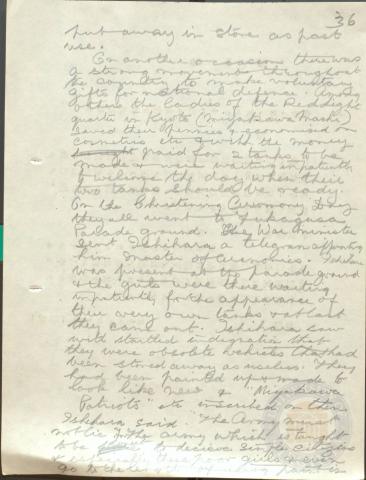 36
put away in store as past
use.
On another occasion there was
a strong movement throughout
the country to make voluntary
gifts for national defence. Among
others the Ladies of the Red Light
quarter in Kyoto (Miyakawa Machi)
saved their pennies & economised on
cosmetics etc & with the money
paid for 2 tanks to be
made & were waiting impatiently
the day when their
two tanks should be ready.
On the Christening Ceremony Day
they all went to Fukagusa
Parade ground. The War Minister
sent Ishihara a telegram appointing
him Master of Ceremonies. Ishihara
was present at the parade ground
& the girls were there waiting
impatiently for the appearance of
their very own tanks & at last
they came out. Ishihara saw
with startled indignation that
they were obsolete vehicles that had
been stored away as useless. They
had been painted up & made to
look like new & "Miyakawa
Patriots" etc inscribed on them
Ishihara said. "The Army must
not lie. The Army which is taught
to be to decieve simple citizens
these poor girls never
go to the of using paint